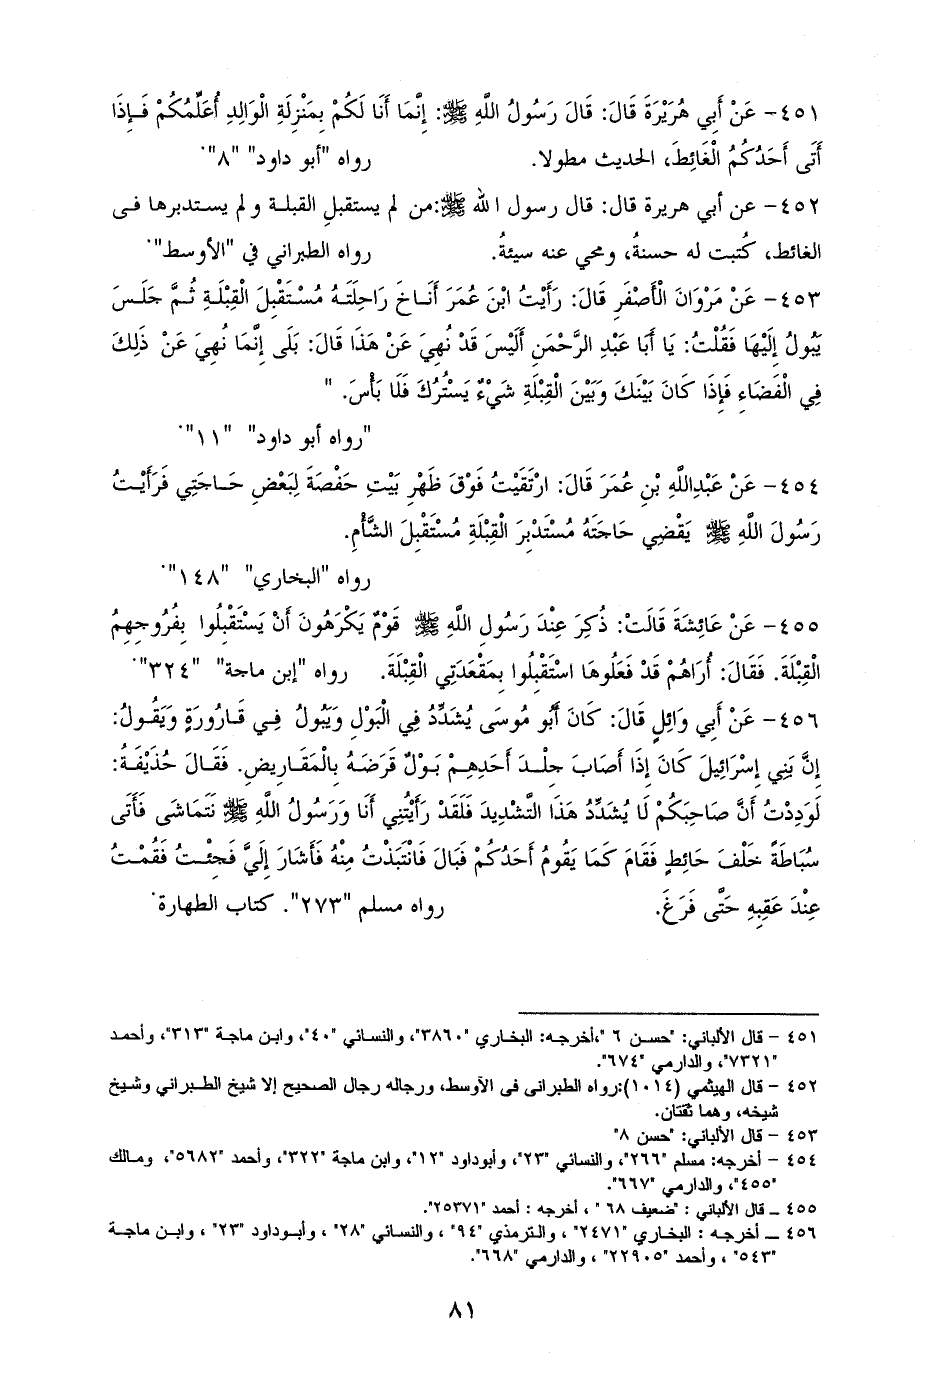 ٤٥١- عَنْ أَبِي هُرَيْرَةَ قَالَ: قَالَ رَسُولُ اللَّهِ ﷺ: إِنَّمَا أَنَا لَكُمْ بِمَنْزِلَةِ الْوَالِدِ أُعَلِّمُكُمْ فَإِذَا
أَتَى أَحَدُكُمُ الْغَائِطَ، الحديث مطولا. رواه "أبو داود" "٨".
٤٥٢- عن أبي هريرة قال: قال رسول الله ﷺ:من لم يستقبلِ القبلة ولم يستدبرها فى
الغائط، كُتبت له حسنةُ، ومحي عنه سيئةُ. رواه الطبراني في "الأوسط".
٤٥٣- عَنْ مَرْوَانَ الْأَصْفَرِ قَالَ: رَأَيْتُ ابْنَ عُمَرَ أَنَاخَ رَاحِلَتَهُ مُسْتَقْبِلَ الْقِبْلَةِ ثُمَّ جَلَسَ
يَبُولُ إِلَيْهَا فَقُلْتُ: يَا أَبَا عَبْدِ الرَّحْمَنِ أَلَيْسَ قَدْ نُهِيَ عَنْ هَذَا قَالَ: بَلَى إِنَّمَا نُهِيَ عَنْ ذَلِكَ
فِي الْفَضَاءِ فَإِذَا كَانَ بَيْنَكَ وَبَيْنَ الْقِبْلَةِ شَيْءٌ يَسْتُرُكَ فَلَا بَأْسَ. "
"رواه أبو داود" "١١".
٤٥٤- عَنْ عَبْدِاللَّهِ بْنِ عُمَرَ قَالَ: ارْتَقَيْتُ فَوْقَ ظَهْرِ بَيْتِ حَفْصَةَ لِبَعْضِ حَاجَتِي فَرَأَيْتُ
رَسُولَ اللَّهِ ﷺ يَقْضِي حَاجَتَهُ مُسْتَدْبِرَ الْقِبْلَةِ مُسْتَقْبِلَ الشَّأْمِ.
رواه "البخاري" "١٤٨".
٤٥٥- عَنْ عَائِشَةَ قَالَتْ: ذُكِرَ عِنْدَ رَسُولِ اللَّهِ ﷺ قَوْمٌ يَكْرَهُونَ أَنْ يَسْتَقْبِلُوا بِفُرُوجِهِمُ
الْقِبْلَةَ. فَقَالَ: أُرَاهُمْ قَدْ فَعَلُوهَا اسْتَقْبِلُوا بِمَقْعَدَتِي الْقِبْلَةَ. رواه "إبن ماجة" "٣٢٤".
٤٥٦- عَنْ أَبِي وَائِلٍ قَالَ: كَانَ أَبُو مُوسَى يُشَدِّدُ فِي الْبَوْلِ وَيَبُولُ فِي قَارُورَةٍ وَيَقُولُ:
إِنَّ بَنِي إِسْرَائِيلَ كَانَ إِذَا أَصَابَ جِلْدَ أَحَدِهِمْ بَوْلٌ قَرَضَهُ بِالْمَقَارِيضِ. فَقَالَ حُذَيْفَةُ:
لَوَدِدْتُ أَنَّ صَاحِبَكُمْ لَا يُشَدِّدُ هَذَا التَّشْدِيدَ فَلَقَدْ رَأَيْتُنِي أَنَا وَرَسُولُ اللَّهِ ﷺ نَتَمَاشَى فَأَتَى
سُبَاطَةً خَلْفَ حَائِطٍ فَقَامَ كَمَا يَقُومُ أَحَدُكُمْ فَبَالَ فَانْتَبَذْتُ مِنْهُ فَأَشَارَ إِلَيَّ فَجِئْتُ فَقُمْتُ
عِنْدَ عَقِبِهِ حَتَّى فَرَغَ. رواه مسلم "٢٧٣". كتاب الطهارة.
٤٥١ - قال الألباني: "حسن ٦ "،أخرجه: البخاري "٣٨٦٠"، والنسائي "٤٠"، وابن ماجة "٣١٣"، وأحمد
"٧٣٢١"، والدارمي "٦٧٤".
٤٥٢ - قال الهيثمي (١٠١٤):رواه الطبرانى فى الأوسط، ورجاله رجال الصحيح إلا شيخ الطبراني وشيخ
شيخه، وهما ثقتان.
٤٥٣ - قال الألباني: "حسن ٨"
٤٥٤ - أخرجه: مسلم "٢٦٦"، والنسائي "٢٣"، وأبوداود "١٢"، وابن ماجة "٣٢٢"، وأحمد "٥٦٨٢"، ومالك
"٤٥٥"، والدارمي "٦٦٧".
٤٥٥ - قال الألباني : "ضعيف ٦٨ " ، أخرجه : أحمد "٢٥٣٧١".
٤٥٦ - أخرجه : البخاري "٢٤٧١" ، والترمذي "٩٤" ، والنسائي "٢٨" ، وأبوداود "٢٣" ، وابن ماجة
"٥٤٣" ، وأحمد "٢٢٩٠٥" ، والدارمي "٦٦٨".
٨١